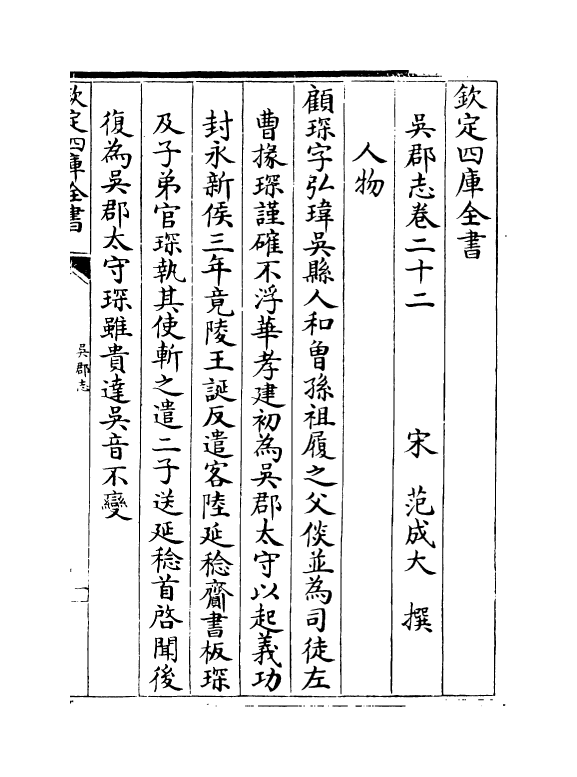 欽定四庫全書
吳郡志卷二十二
宋 范成大 撰
人物
顧琛字弘瑋吳縣人和曾孫祖履之父惔並為司徒左
曹掾琛謹確不浮華孝建初為吳郡太守以起義功
封永新侯三年竟陵王誕反遣客陸延稔齎書板琛
及子弟官琛執其使斬之遣二子送延稔首啓聞後
復為吳郡太守琛雖貴達吳音不變
欽定四庫全書
吳郡志
一